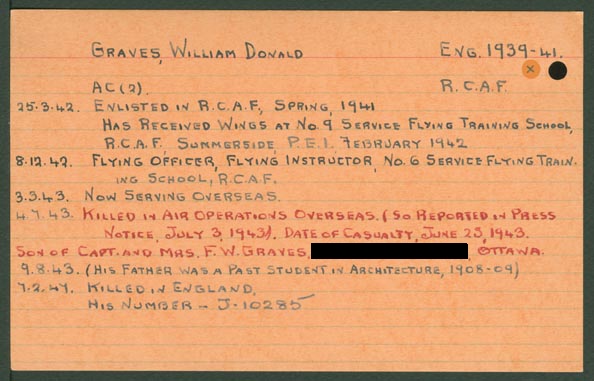 GRAVES, WILLIAM DONALD ENG. 1939-41.
AC(2). R.C.A.F.
25.3.42. ENLISTED IN R.C.A.F., SPRING, 1941
HAS RECEIVED WINGS AT NO. 9 SERVICE FLYING TRAINING SCHOOL,
R.C.A.F., SUMMERSIDE, P.E.I. FEBRUARY 1942
8.12.42. FLYING OFFICER, FLYING INSTRUCTOR, NO. 6 SERVICE FLYING TRAIN-
ING SCHOOL, R.C.A.F.
3.3.43. NOW SERVING OVERSEAS.
4.7.43. KILLED IN AIR OPERATIONS OVERSEAS. (SO REPORTED IN PRESS
NOTICE, JULY 3, 1943). DATE OF CASUALTY, JUNE 25, 1943.
SON OF CAPT. AND MRS. F. W. GRAVES, OTTAWA.
9.8.43. (HIS FATHER WAS A PAST STUDENT IN ARCHITECTURE, 1908-09)
7.2.47. KILLED IN ENGLAND.
HIS NUMBER - J-10285